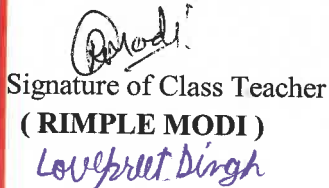 RModi
Signature of Class Teacher
( RIMPLE MODI )
Lovepreet Singh